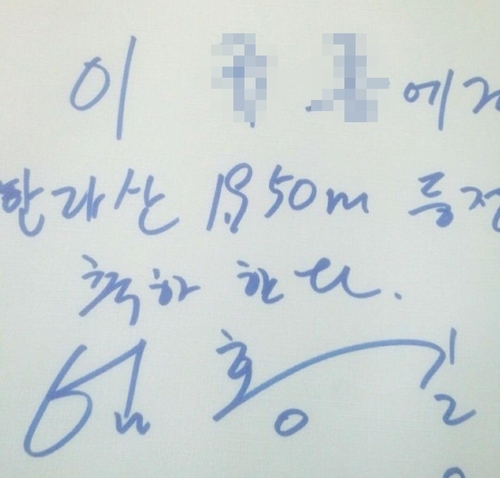 이 에게
한라산 1,950m 등정
축하 한다.
엄홍길